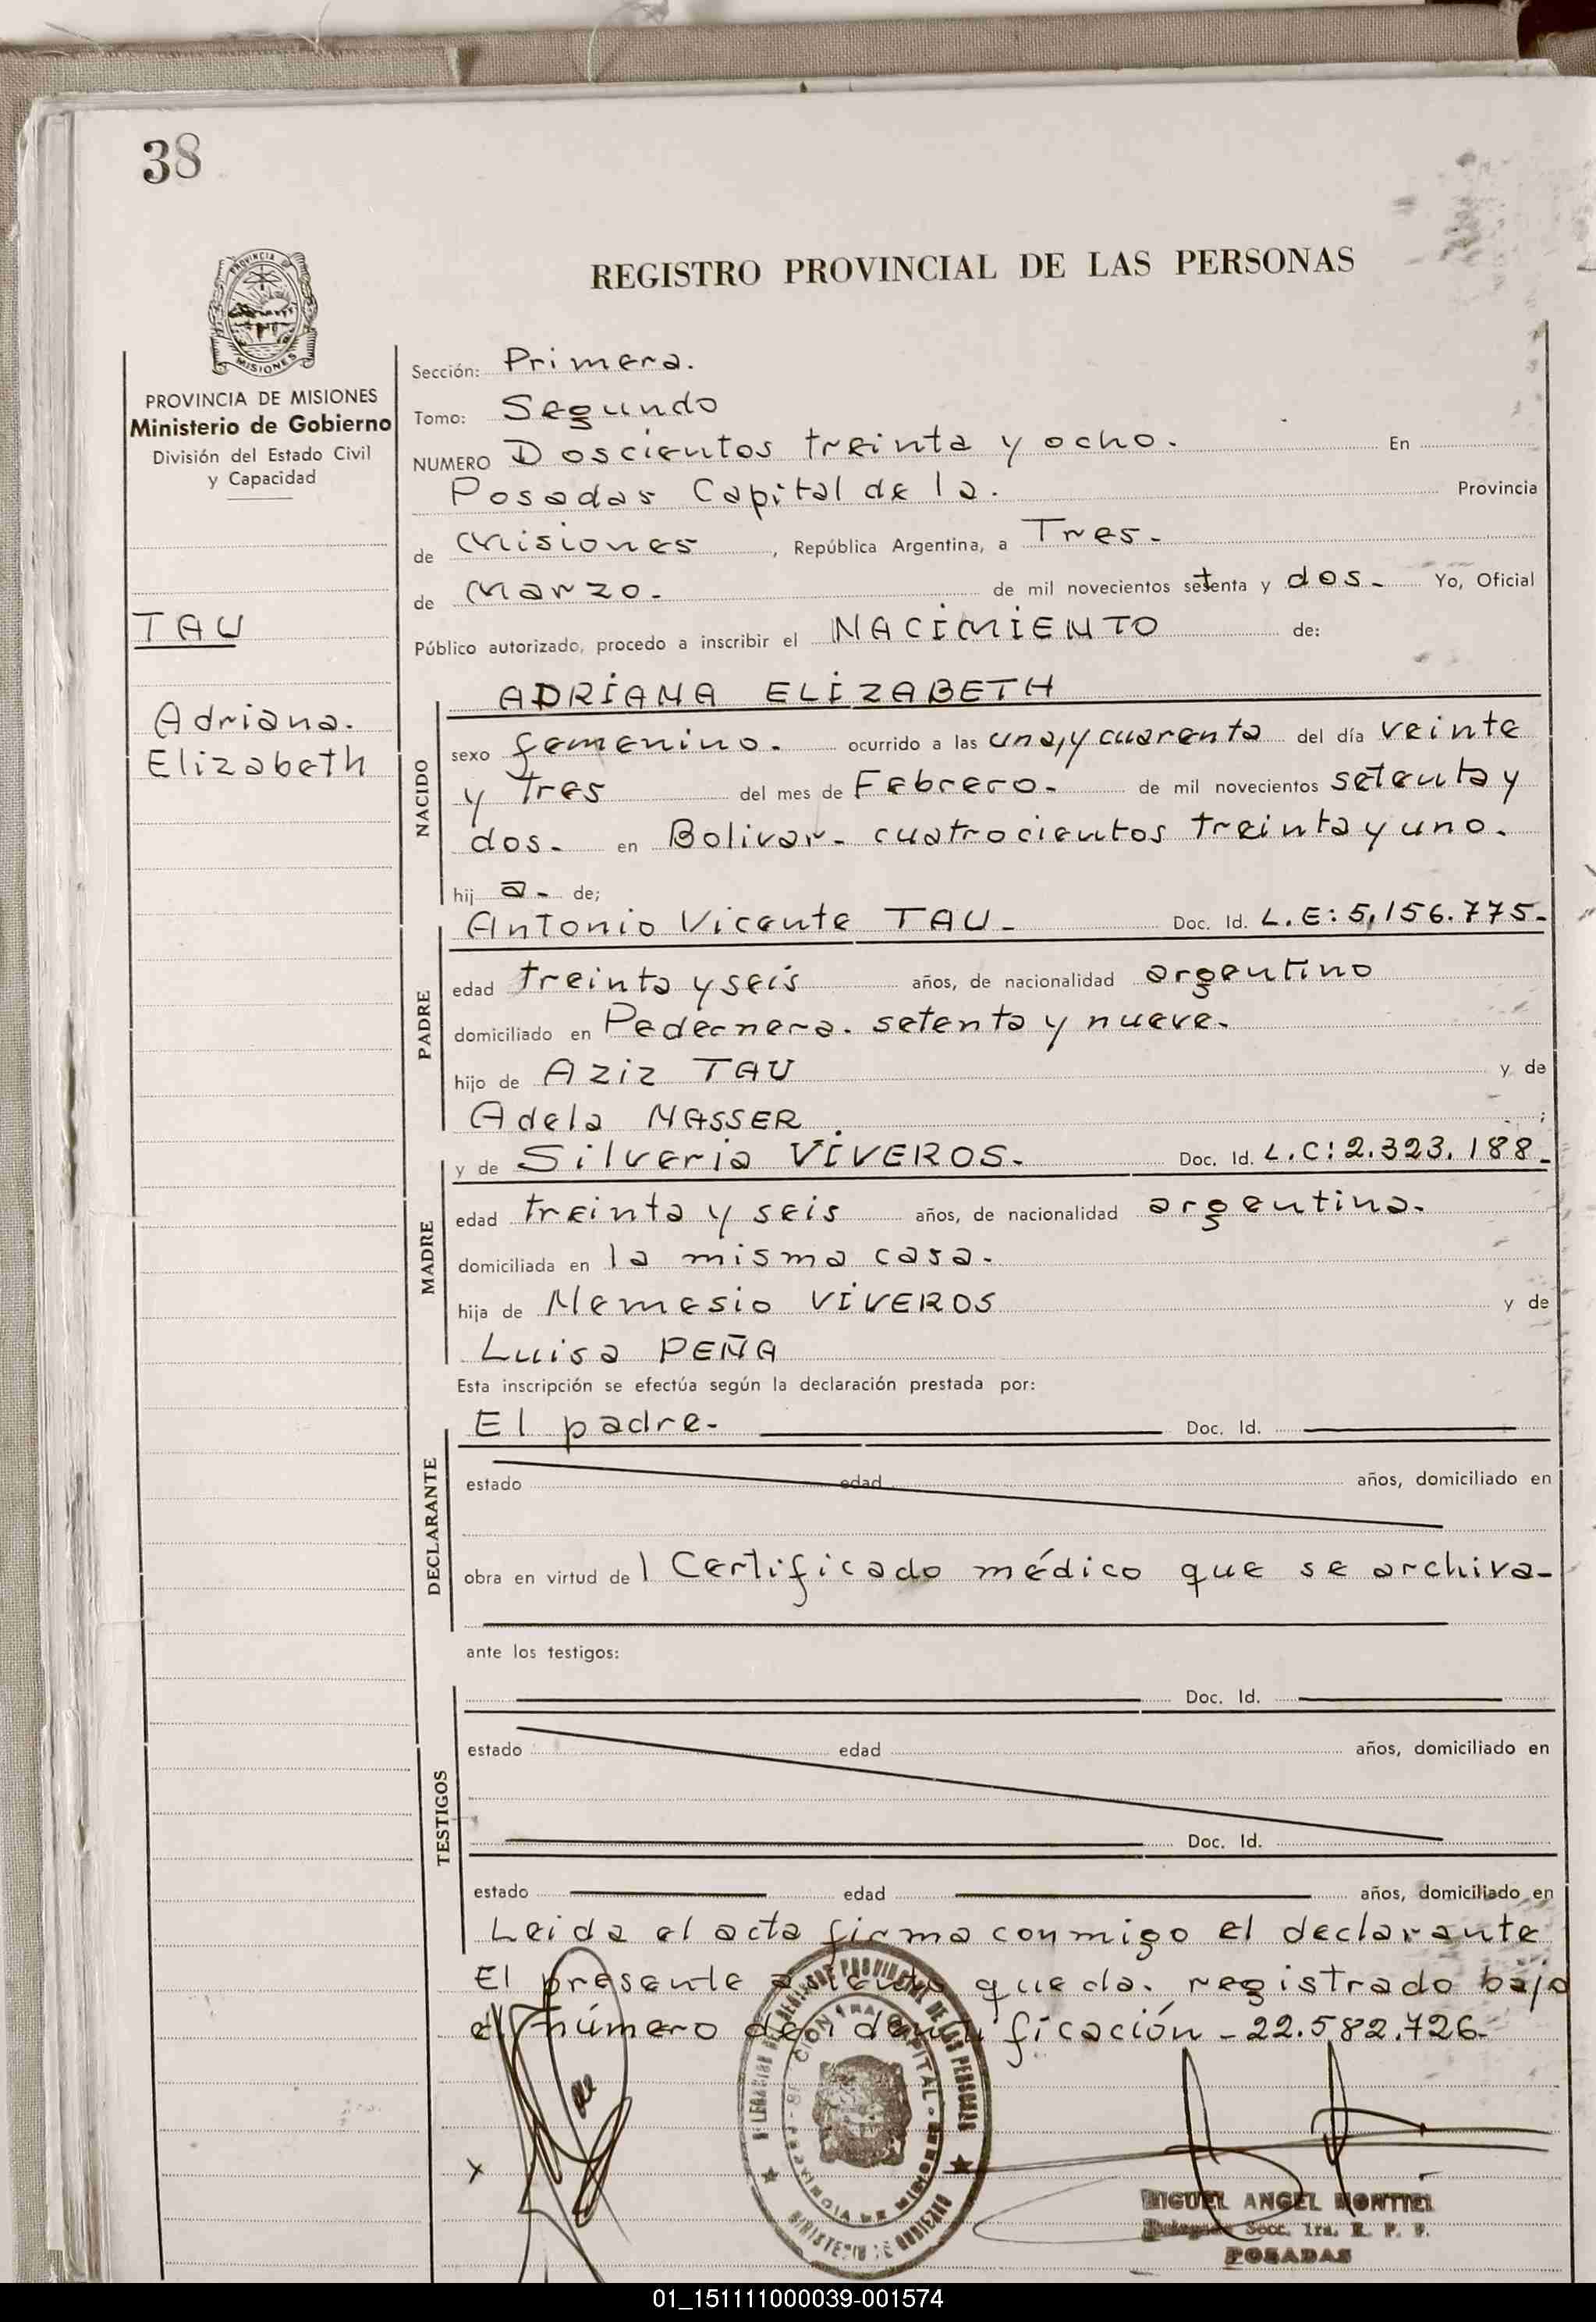 38
REGISTRO PROVINCIAL DE LAS PERSONAS
PROVINCIA
MISIONES
PROVINCIA DE MISIONES
Ministerio de Gobierno
División del Estado Civil
y Capacidad
TAU
Adriana.
Elizabeth
Sección: Primera.
Tomo: Segundo
NUMERO Doscientos treinta y ocho. En
Posadas Capital de la. Provincia
de Misiones, República Argentina, a Tres-
de Marzo. de mil novecientos setenta y dos- Yo, Oficial
Público autorizado, procedo a inscribir el NACIMIENTO de:
NACIDO
ADRIANA ELIZABETH
sexo femenino. ocurrido a las una, y cuarenta del día veinte
y tres del mes de Febrero. de mil novecientos setenta y
dos. en Bolivar- cuatrocientos treinta y uno.
hij a- de;
PADRE
Antonio Vicente TAU- Doc. Id. L.E: 5,156.775-
edad treinta y seis años, de nacionalidad argentino
domiciliado en Pedernera. setenta y nueve.
hijo de Aziz TAU y de
Adela NASSER ;
MADRE
y de Silveria VIVEROS. Doc. Id. L.C: 2.323.188-
edad treinta y seis años, de nacionalidad argentina.
domiciliada en la misma casa.
hija de Nemesio VIVEROS y de
Luisa PEÑA
Esta inscripción se efectúa según la declaración prestada por:
DECLARANTE
El padre- Doc. Id.
estado edad años, domiciliado en
obra en virtud de l Certificado médico que se archiva-
ante los testigos:
TESTIGOS
Doc. Id.
estado edad años, domiciliado en
Doc. Id.
estado edad años, domiciliado en
Leida el acta firma conmigo el declarante
El presente asiento queda. registrado bajo
el número de identificación - 22.582.726-
x
MIGUEL ANGEL MONTIEL
Delegado Secc. 1ra. R. P. P.
POSADAS
01_151111000039-001574